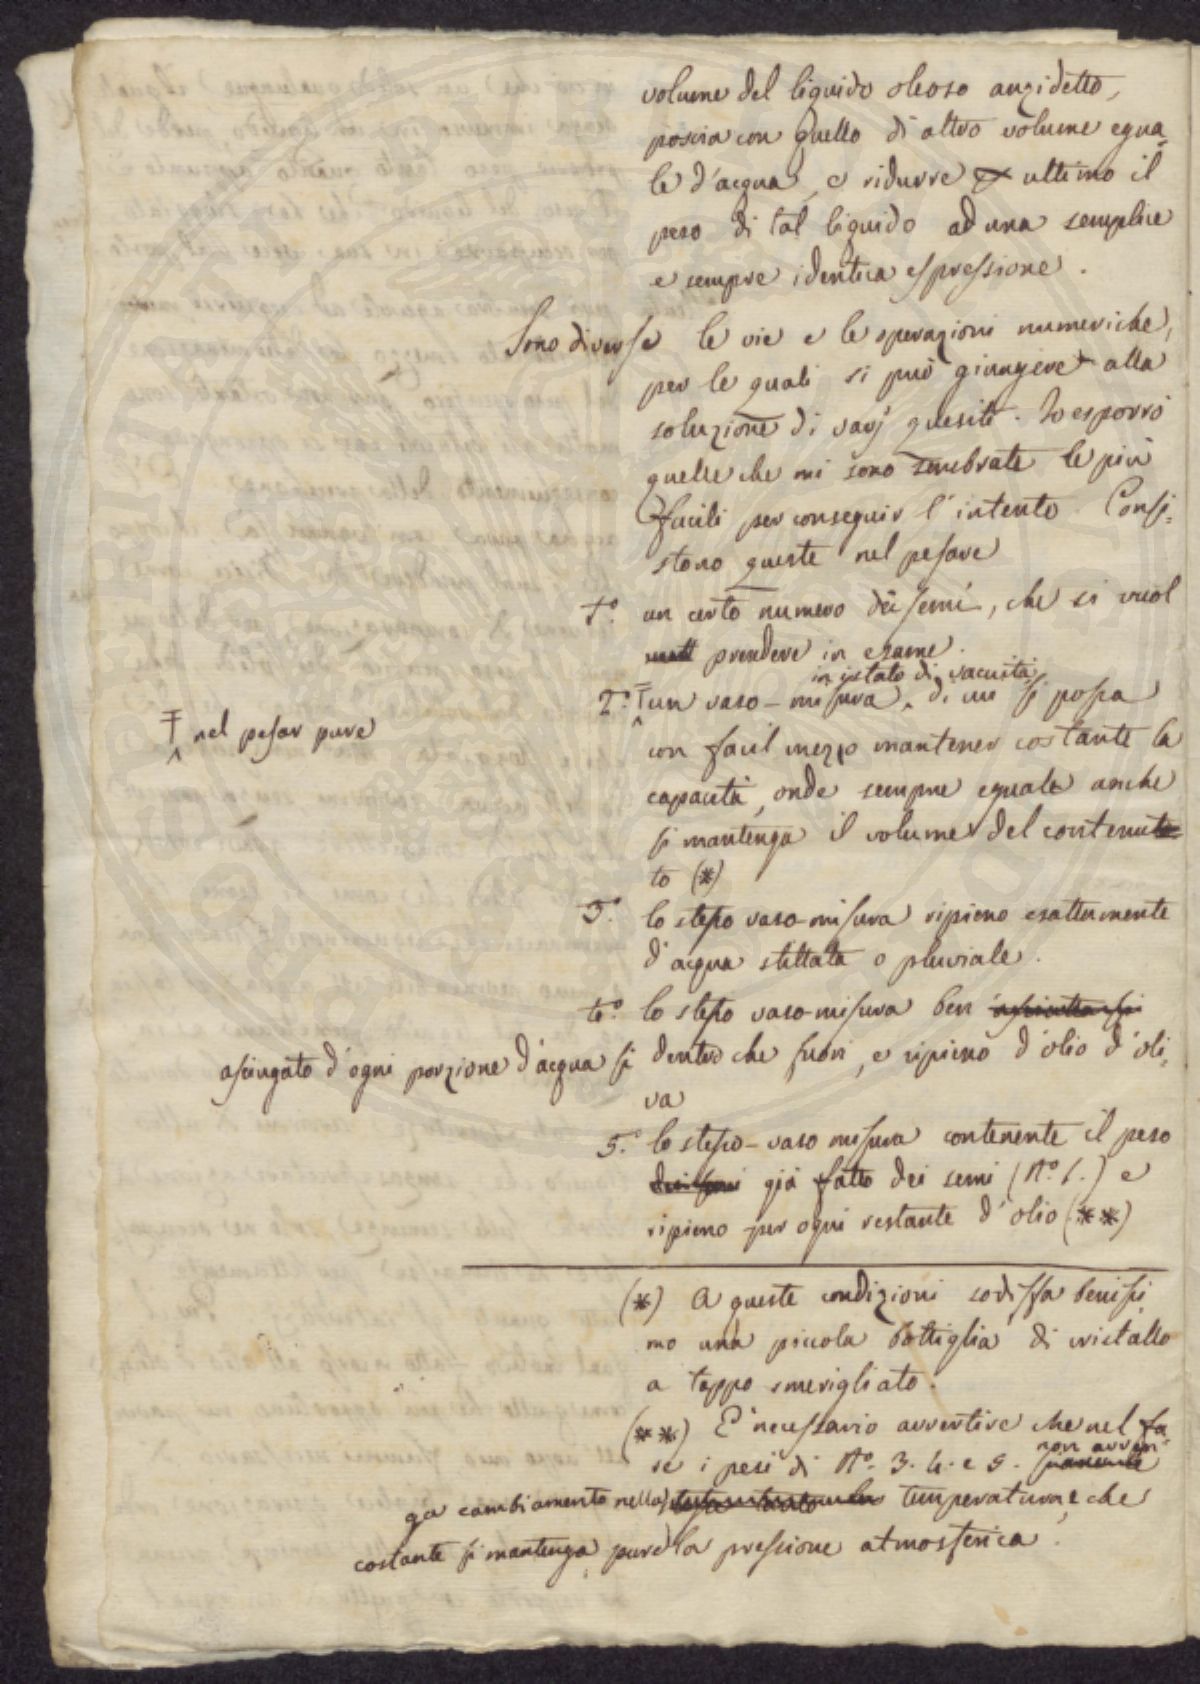 volume del liquido oleoso anzidetto,
poscia con quello di altro volume egua-
le d'acqua, e ridurre per ultimo il
peso di tal liquido ad una semplice
e sempre identica espressione.
Sono diverse le vie e le operazioni numeriche,
per le quali si può giungere alla
soluzione di varj quesiti. Io esporrò
quelle che mi sono sembrate le più
facili per conseguir l'intento. Consi-
stono queste nel pesare
1.o un certo numero dei semi, che si vuol
prendere in esame.
in istato di vacuità
2.o un vaso-misura, di cui si possa
nel pesar pure
con facil mezzo mantener costante la
capacità, onde sempre eguale anche
si mantenga il volume del contenut
to (*)
3.o lo stesso vaso-misura ripieno esattamente
d'acqua stillata o pluviale.
4.o lo stesso vaso-misura ben
asciugato d'ogni porzione d'acqua sì dentro che fuori, e ripieno d'olio d'oli-
va
5.o lo stesso-vaso misura contenente il peso
già fatto dei semi (N.o 1.) e
ripieno per ogni restante d'olio (**)
(*) A queste condizioni sodisfa benissi
mo una piccola bottiglia di cristallo
a tappo smerigliato.
(**) E' necessario avvertire che nel fa-
re i pesi di N.o 3. 4. e 5. non avven-
ga cambiamento nella temperatura, e che
costante si mantenga pure la pressione atmosferica.